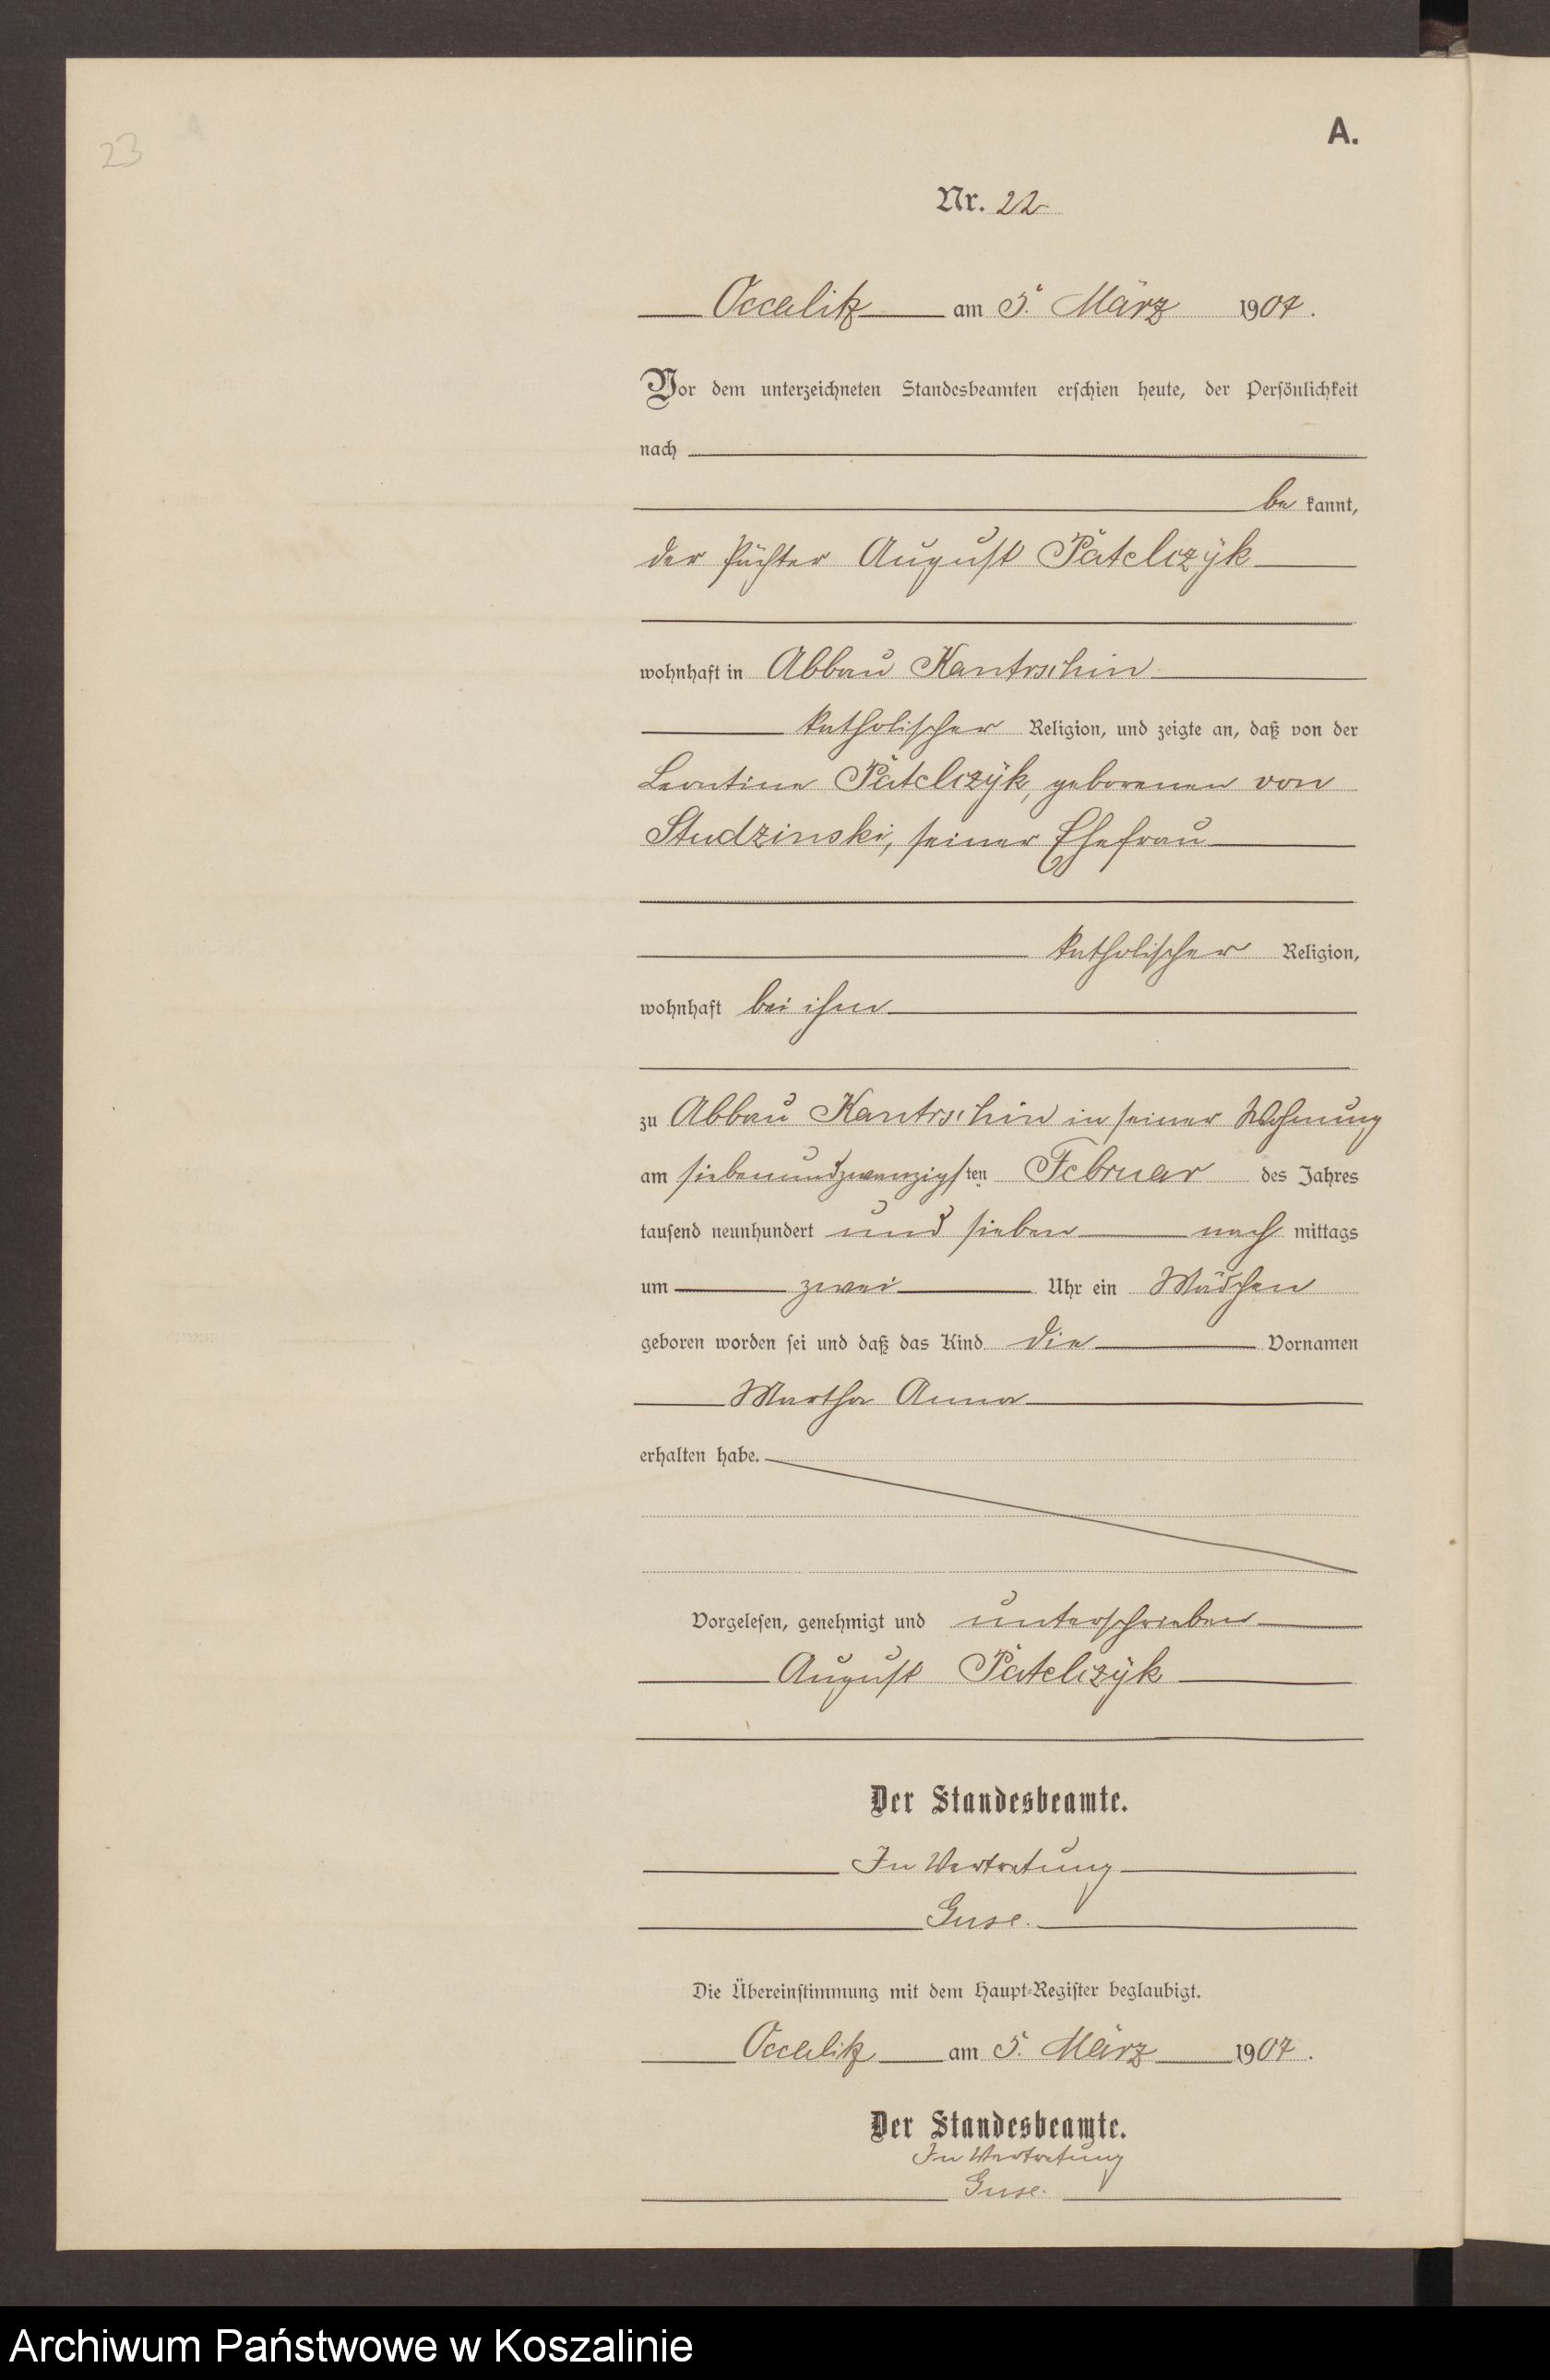 23
A.
Nr. 22
Occalitz am 5. März 1907.
Vor dem unterzeichneten Standesbeamten erschien heute, der Persönlichkeit
nach
be kannt,
der Pächter August Pätelczÿk
wohnhaft in Abbau Kantrschin
katholischer Religion, und zeigte an, daß von der
Leontine Pätelczÿk, geborenen von
Studzinski, seiner Ehefrau
katholischer Religion,
wohnhaft bei ihm
zu Abbau Kantrschin in seiner Wohnung
am siebenundzwanzigsten Februar des Jahres
tausend neunhundert und sieben nach mittags
um zwei Uhr ein Mädchen
geboren worden sei und daß das Kind die Vornamen
Martha Anna
erhalten habe.
Vorgelesen, genehmigt und unterschrieben
August Pätelczÿk
Der Standesbeamte.
In Vertretung
Guse.
Die Übereinstimmung mit dem Haupt-Register beglaubigt.
Occalitz am 5. März 1907.
Der Standesbeamte.
In Vertretung
Guse.
Archiwum Państwowe w Koszalinie